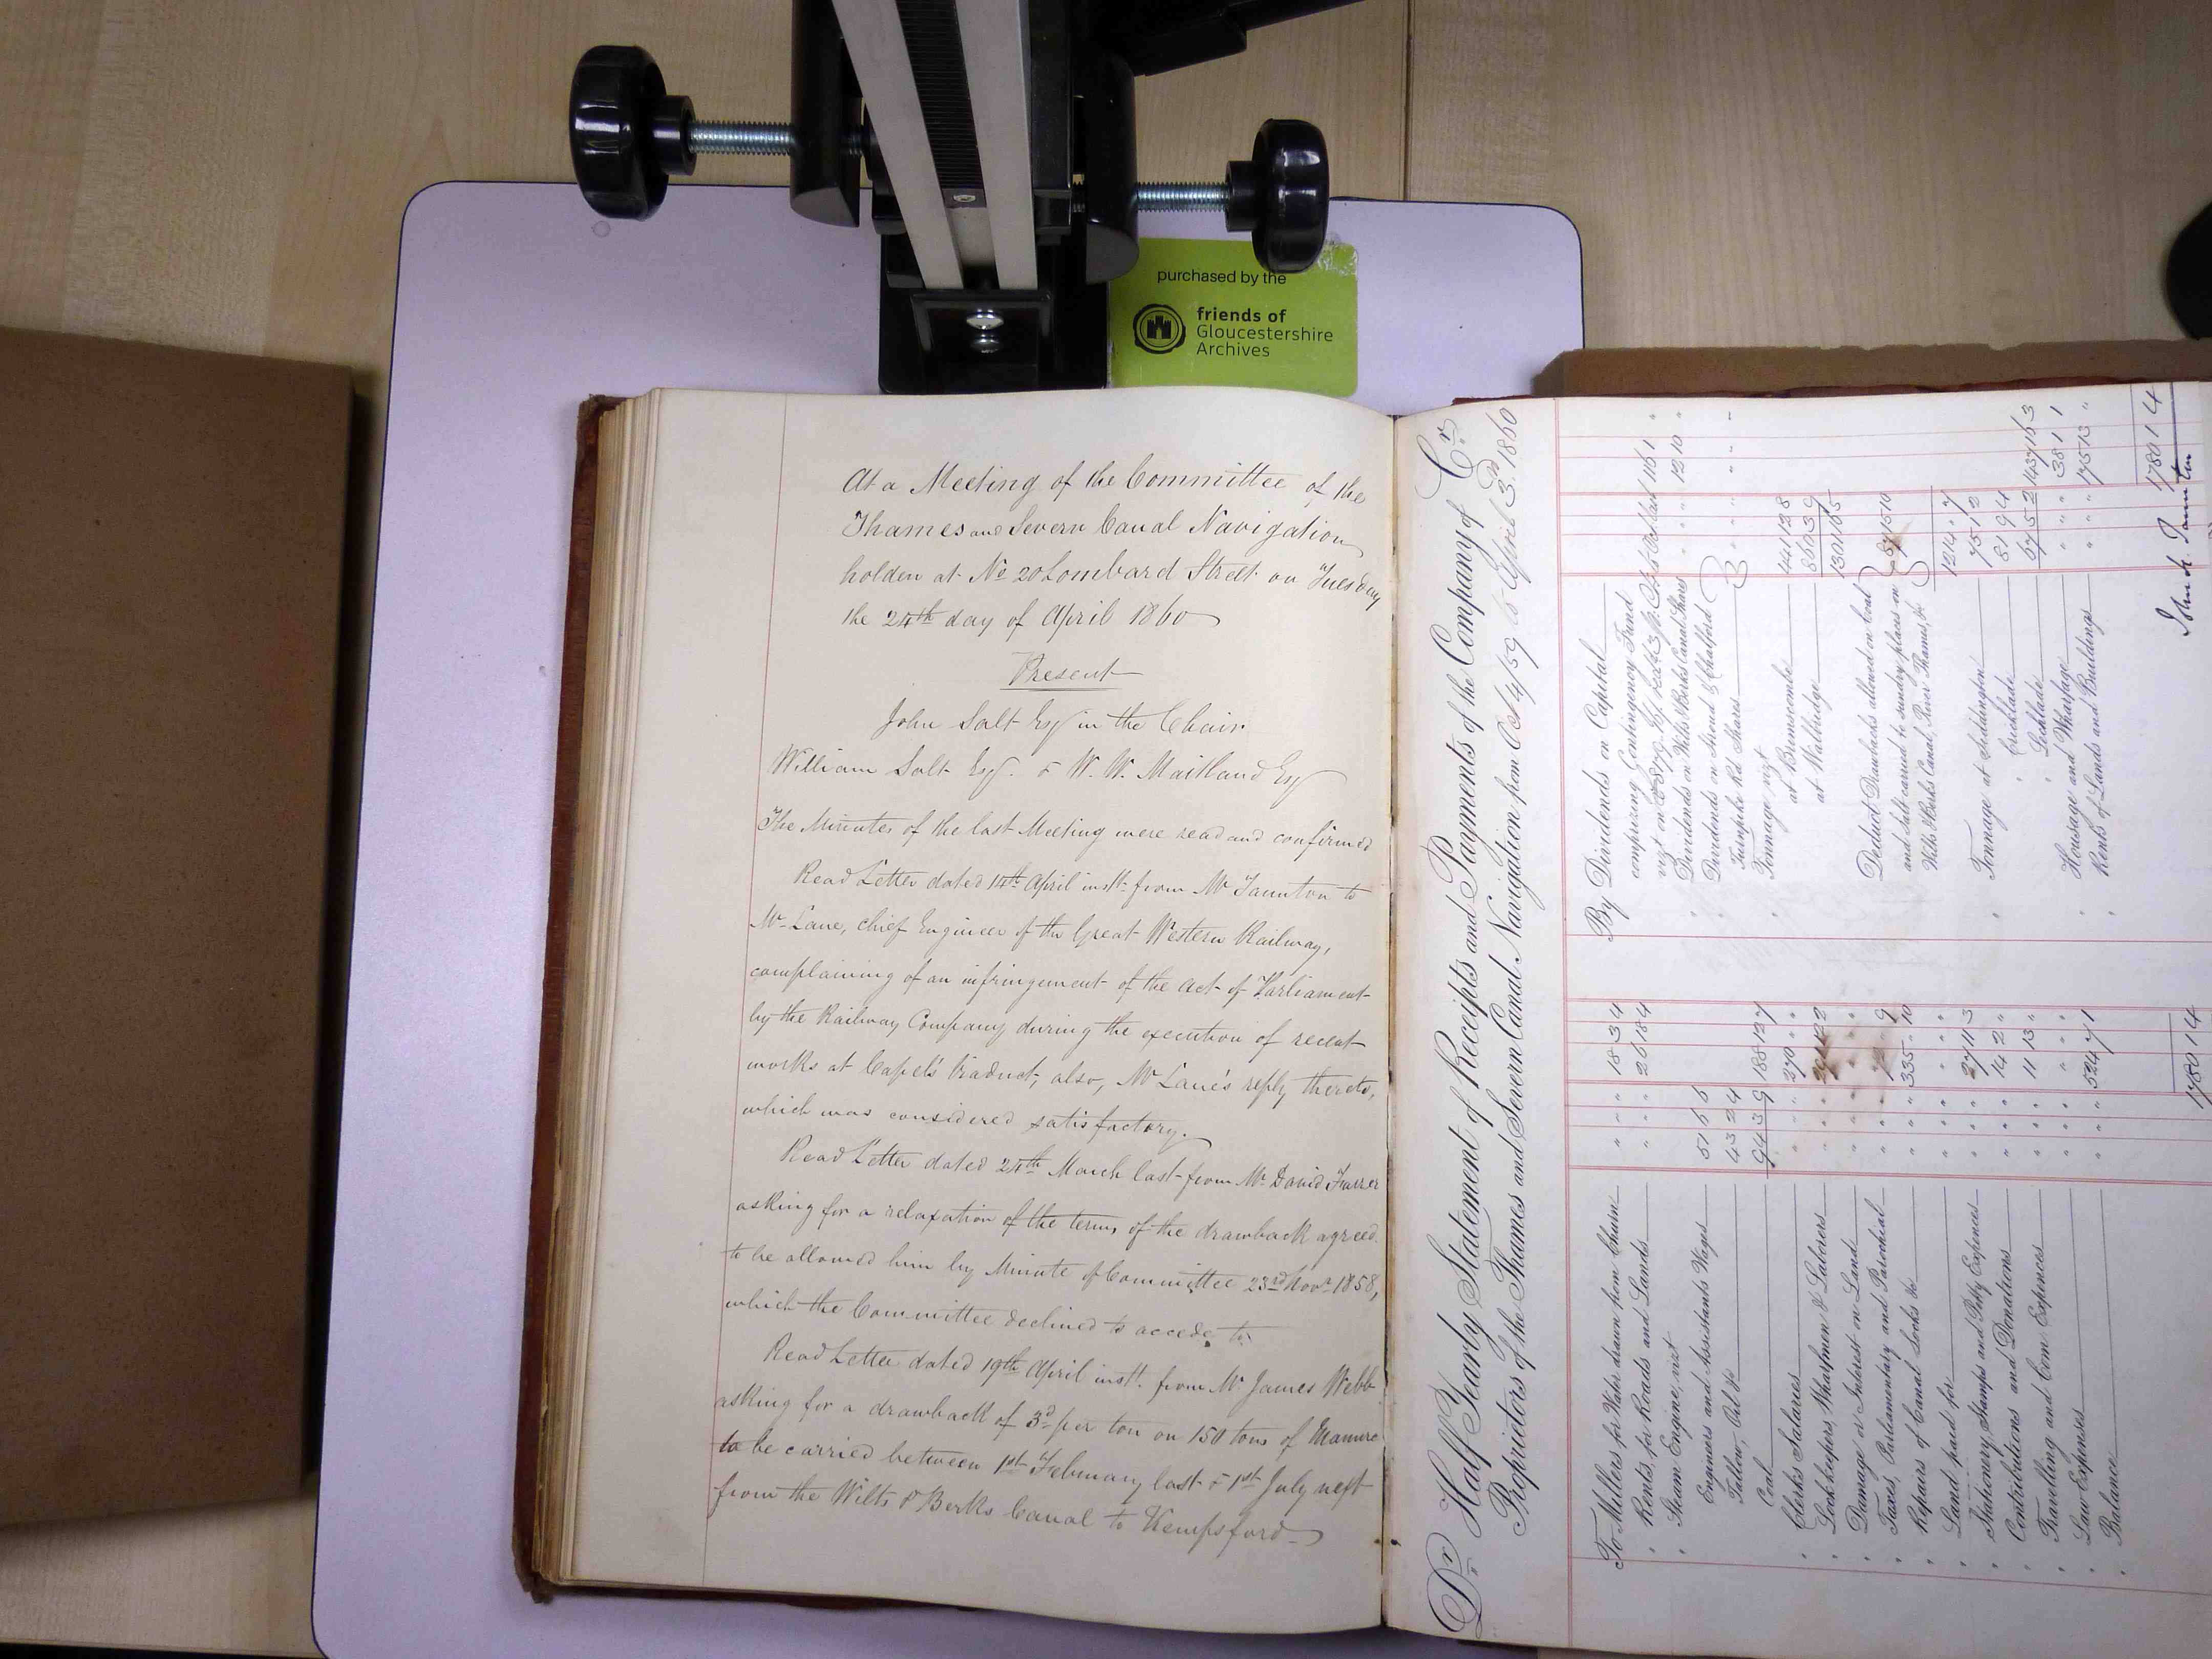 purchased by the
friends of
Gloucestershire
Archives
At a Meeting of the Committee of the
Thames and Severn Canal Navigation
holden at No 20 Lombard Street on Tuesday
the 24th day of April 1860
Present
John Salt Esqr in the Chair
William Salt Esqr. & W. W. Maitland Esqr
The Minutes of the last Meeting were read and confirmed
Read Letter dated 14th April instt. from Mr Taunton to
Mr Lane, chief Engineer of the Great Western Railway,
complaining of an infringement of the Act of Parliament
by the Railway Company during the execution of recent
works at Capel's Viaduct, also, Mr Lane's reply thereto,
which was considered satisfactory.
Read Letter dated 24th March last from Mr David
asking for a relaxation of the terms of the drawback agreed
to be allowed him by Minute of Committee 23rd Novr 1858,
which the Committee declined to accede to
Read Letter dated 19th April instt. from Mr James Webb
asking for a drawback of 3d per ton on 150 tons of Manure
to be carried between 1st February last & 1st July next
from the Wilts & Berks Canal to Kempsford
Dr Half Yearly Statement of Receipts and Payments of the Company of Cr
Proprietors of the Thames and Severn Canal Navigation from Oct 4/59 to April 3rd 1860
To Millers for Water drawn from Churn " " " 18 3 4
" Rents, for Roads and Lands " " " 26 18 4
" Steam Engine, vizt
Engineers and Assistants Wages 51 5
Tallow, Oil & 43 2 4
Coal 94 3 9 188 12 7
" Clerks Salaries " " " 270 " "
" Lockkeepers, Wharfmen & Laborers
" Damage or Interest on Land
" Taxes, Parliamentary and Parochial
" Repairs of Canal Locks &c 335 " 10
" Land paid for
" Stationery, Stamps and Petty Expences 27 11 3
" Contributions and Donations 14 2 "
" Travelling and Com Expences 11 13 "
" Law Expenses
" Balance 524 7 1
1780 1 4
By Dividends on Capital
comprizing Contingency Fund
" Dividends on Wilts & Berks Canal Shares " " " 12 10 "
" Dividends on Stroud & Chalford
Turnpike Rd Shares
" Tonnage, vizt
at Brimscombe 441 12 8
at Wallbridge 860 3 9
1301 16 5
Deduct Drawbacks allowed on Coal
and Salt carried to sundry places on
Wilts & Berks Canal, River Thames, &c 87 15 10
1214 " 7
" Tonnage at Siddington 75 1 2
" Cricklade 81 9 4
" Lechlade 67 5 2 1437 16 3
" Housage and Wharfage " " " 38 1 1
" Rents of Lands and Buildings " " " 175 13 "
1780 1 4
John H. Taunton